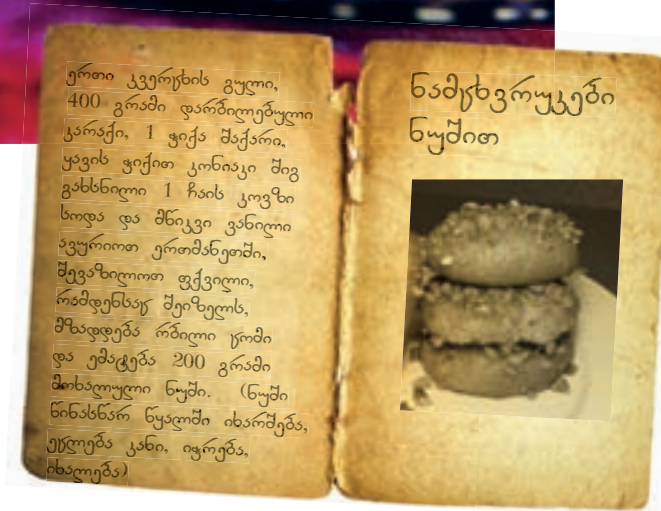 ერთი კვერცხის გული,
400 გრამი დარბილებული
კარაქი, 1 ჭიქა შაქარი,
ყავის ჭიქით კონიაკი მიგ
გახსნილი 1 ჩაის კოვზი
სოდა და მწიკვი ვანილი
ავურიოთ ერთმანეთში,
შევაზილოთ ფქვილი,
რამდენსაც შეიზელს,
მზადდება რბილი ცომი
და ემატება 200 გრამი
მოხალული ნუში. (ნუში
წინასწარ წყალში იხარშება,
ეცლება კანი, იჭრება,
იხალება)
ნამცხვრუკები
ნუშით